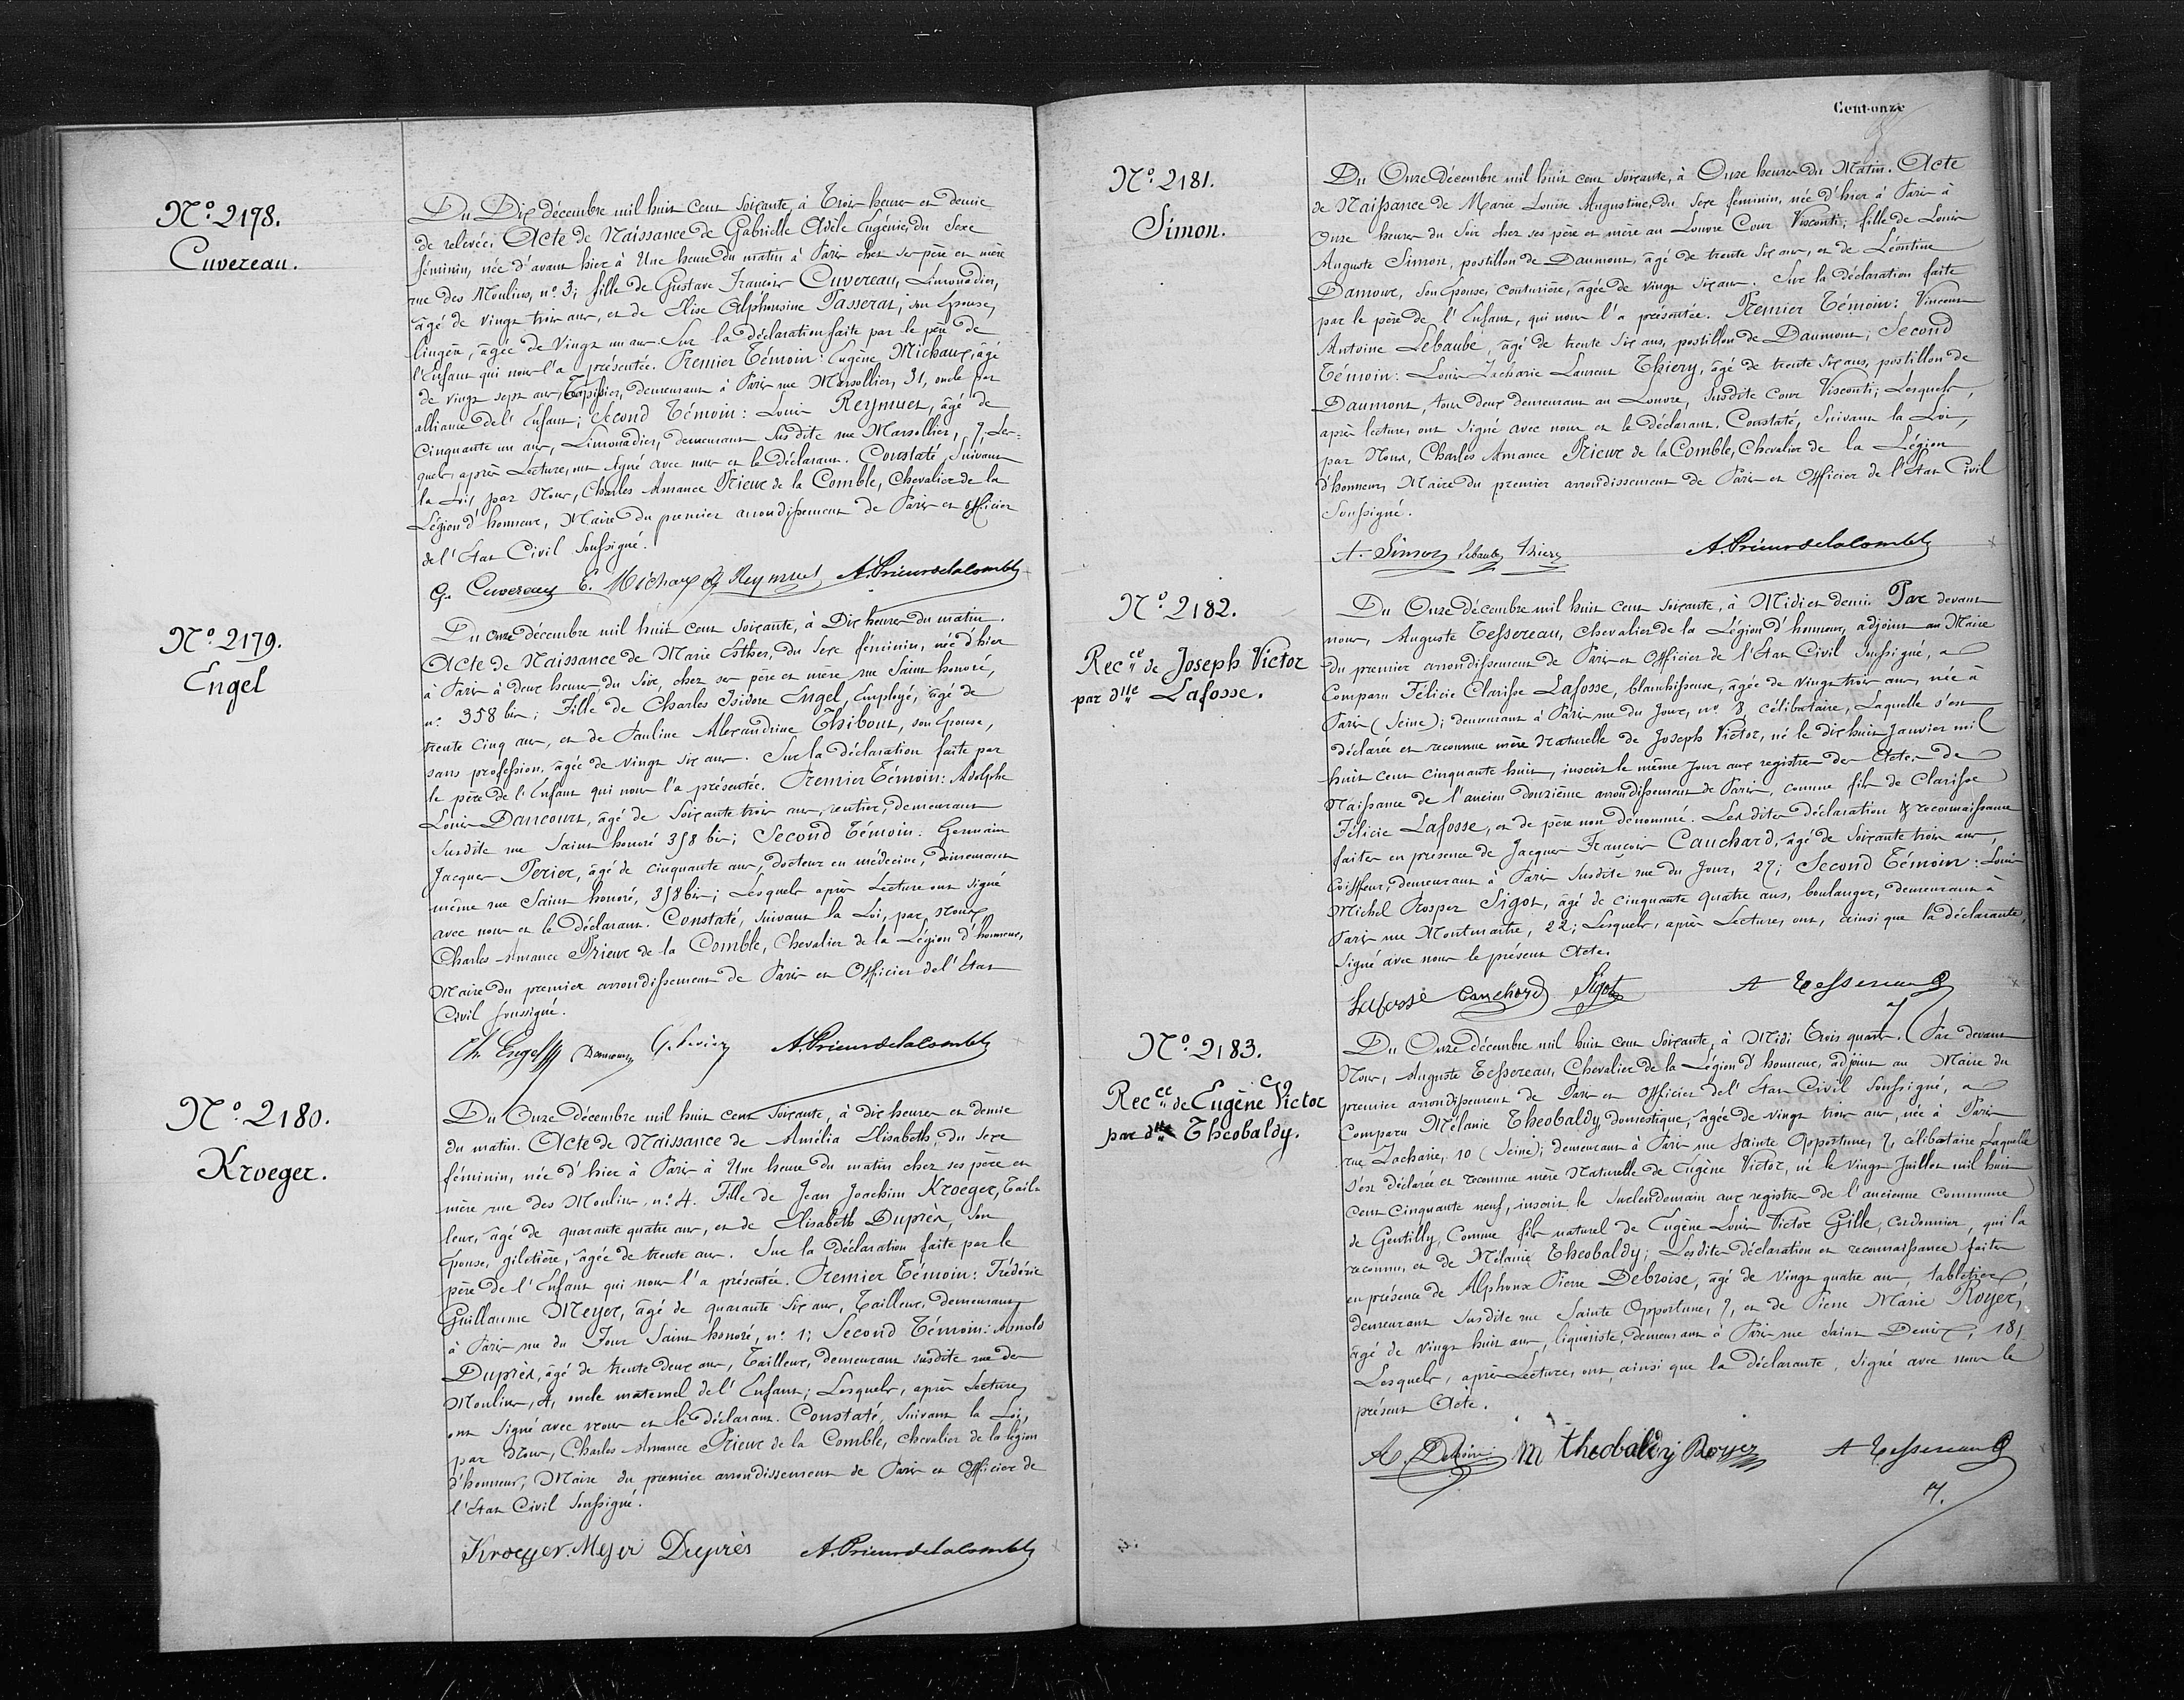 Nº 2178.
Cuvereau.
Du Dix décembre mil huit cent soixante, à Trois heures et demie
de relevée, Acte de Naissance de Gabrielle Adèle Eugénie, du Sexe
féminin, née d'avant hier à Une heure du matin à Paris chez ses père et mère
rue des Moulins, nº 3; fille de Gustave François Cuvereau, Limonadier,
âgé de vingt trois ans, et de Elise Alphonsine Passerat, son Epouse,
lingère, âgée de Vingt un ans. Sur la déclaration faite par le père de
l'Enfant qui nous l'a présentée. Premier Témoin: Eugène Michaux, âgé
de vingt sept ans, Tapissier, demeurant à Paris rue Marsollier, 31, oncle par
alliance de l'Enfant; Second Témoin: Louis Reymuet, âgé de
Cinquante un ans, Limonadier, demeurant susdite rue Marsollier, 7, Les-
quels, après Lecture, ont signé avec nous et le déclarant. Constaté, suivant
la Loi, par Nous, Charles Amance Prieur de la Comble, Chevalier de la
Légion d'honneur, Maire du premier arrondissement de Paris et officier
de l'Etat Civil soussigné.
G. Cuvereau E. Michaux Reymuet A. Prieur de la Comble
Nº 2179.
Engel
Du onze décembre mil huit cent soixante, à Dix heures du matin.
Acte de Naissance de Marie Esther, du sexe féminin, née d'hier
à Paris à deux heures du Soir, chez ses père et mère rue Saint honoré,
nº 358 bis; Fille de Charles Isidore Engel, Employé, âgé de
trente cinq ans, et de Pauline Alexandrine Thibout, son Epouse,
sans profession, âgée de vingt six ans. Sur la déclaration faite par
le père de l'Enfant qui nous l'a présentée. Premier Témoin: Adolphe
Louis Dancourt, âgé de soixante trois ans, rentier, demeurant
susdite rue Saint honoré 358 bis; Second Témoin: Germain
Jacques Perier, âgé de cinquante ans, docteur en médecine, demeurant
même rue Saint honoré, 358 bis; Lesquels après Lecture ont signé
avec nous et le déclarant. Constaté, suivant la Loi, par Nous,
Charles Amance Prieur de la Comble, Chevalier de la Légion d'honneur,
Maire du premier arrondissement de Paris et Officier de l'Etat
Civil soussigné.
Ch. Engel Dancourt G. Perier A. Prieur de la Comble
Nº 2180.
Kroeger.
Du Onze décembre mil huit cent soixante, à dix heures et demie
du matin. Acte de Naissance de Amélia Elisabeth, du sexe
féminin, née d'hier à Paris à Une heure du matin chez ses père et
mère rue des Moulins, nº 4. Fille de Jean Joachim Kroeger, Tail-
leur, âgé de quarante quatre ans, et de Elisabeth Duprès, son
épouse, giletière, âgée de trente ans. Sur la déclaration faite par le
père de l'Enfant qui nous l'a présentée. Premier Témoin: Frédéric
Guillaume Meyer, âgé de quarante six ans, Tailleur, demeurant
à Paris rue du Four Saint honoré, nº 1; Second Témoin: Arnold
Duprès, âgé de trente deux ans, Tailleur, demeurant susdite rue des
Moulins, 4, oncle maternel de l'Enfant; Lesquels, après Lecture,
ont signé avec nous et le déclarant. Constaté, suivant la Loi,
par Nous, Charles Amance Prieur de la Comble, chevalier de la légion
d'honneur, Maire du premier arrondissement de Paris et Officier de
l'Etat Civil soussigné.
Kroeger. Meyer Duprès A. Prieur de la Comble
Cent-onze
Nº 2181.
Simon.
Du Onze décembre mil huit cent soixante, à Onze heures du Matin. Acte
de Naissance de Marie Louise Augustine, du sexe féminin, née d'hier à Paris à
Onze heures du Soir chez ses père et mère au Louvre Cour Visconti; fille de Louis
Auguste Simon, postillon de Daumont, âgé de trente six ans, et de Léontine
Damour, son épouse, couturière, âgée de vingt six ans. Sur la déclaration faite
par le père de l'Enfant, qui nous l'a présentée. Premier Témoin: Vincent
Antoine Lebaube, âgé de trente six ans, postillon de Daumont; Second
Témoin: Louis Zacharie Laurent Thiery, âgé de trente six ans, postillon de
Daumont, tous deux demeurant au Louvre, susdite Cour Visconti; Lesquels,
après lecture, ont signé avec nous et le déclarant. Constaté, suivant la Loi,
par Nous, Charles Amance Prieur de la Comble, Chevalier de la Légion
d'honneur, Maire du premier arrondissement de Paris et Officier de l'Etat Civil
soussigné.
A. Simon Lebaube Thiery A. Prieur de la Comble
Nº 2182.
Recce de Joseph Victor
par dlle Lafosse.
Du Onze décembre mil huit cent soixante, à Midi et demi. Par devant
nous, Auguste Tessereau, Chevalier de la Légion d'honneur, adjoint au Maire
du premier arrondissement de Paris et Officier de l'Etat Civil soussigné, a
Comparu Félicie Clarisse Lafosse, blanchisseuse, âgée de vingt trois ans, née à
Paris (Seine); demeurant à Paris rue du Jour, nº 8, célibataire, Laquelle s'est
déclarée et reconnue mère Naturelle de Joseph Victor, né le dix huit Janvier mil
huit cent cinquante huit, inscrit le même jour aux registres des Actes de
Naissance de l'ancien douzième arrondissement de Paris, comme fils de Clarisse
Félicie Lafosse, et de père non dénommé. Les dites déclaration & reconnaissance
faites en présence de Jacques François Cauchard, âgé de soixante trois ans,
coiffeur, demeurant à Paris susdite rue du Jour, 27; Second Témoin: Louis
Michel Prosper Sigot, âgé de cinquante quatre ans, boulanger, demeurant à
Paris rue Montmartre, 22; Lesquels, après Lecture, ont, ainsi que la déclarante,
signé avec nous le présent Acte.
Lafosse Cauchard Sigot A Tessereau
Nº 2183.
Recce de Eugène Victor
par dlle Theobaldy.
Du Onze décembre mil huit cent soixante, à Midi Trois quarts. Par devant
Nous, Auguste Tessereau, Chevalier de la Légion d'honneur, adjoint au Maire du
premier arrondissement de Paris et Officier de l'Etat Civil soussigné, a
Comparu Mélanie Theobaldy, domestique, âgée de vingt trois ans, née à Paris
rue Zacharie, 10 (Seine); demeurant à Paris rue Sainte Opportune, 7, célibataire Laquelle
s'est déclarée et reconnue mère Naturelle de Eugène Victor, né le vingt Juillet mil huit
cent cinquante neuf, inscrit le surlendemain aux registres de l'ancienne Commune
de Gentilly, Comme fils naturel de Eugène Louis Victor Gille, Cordonnier, qui l'a
reconnu, et de Mélanie Theobaldy; Lesdites déclaration et reconnaissance faites
en présence de Alphonse Pierre Debroise, âgé de vingt quatre ans, tabletier,
demeurant susdite rue Sainte Opportune, 7, et de Pierre Marie Royer,
âgé de vingt huit ans, liquoriste, demeurant à Paris rue Saint Denis, 181
Lesquels, après Lecture, ont, ainsi que la déclarante, signé avec nous le
présent Acte.
A. Debroise m theobaldy Royer A Tessereau